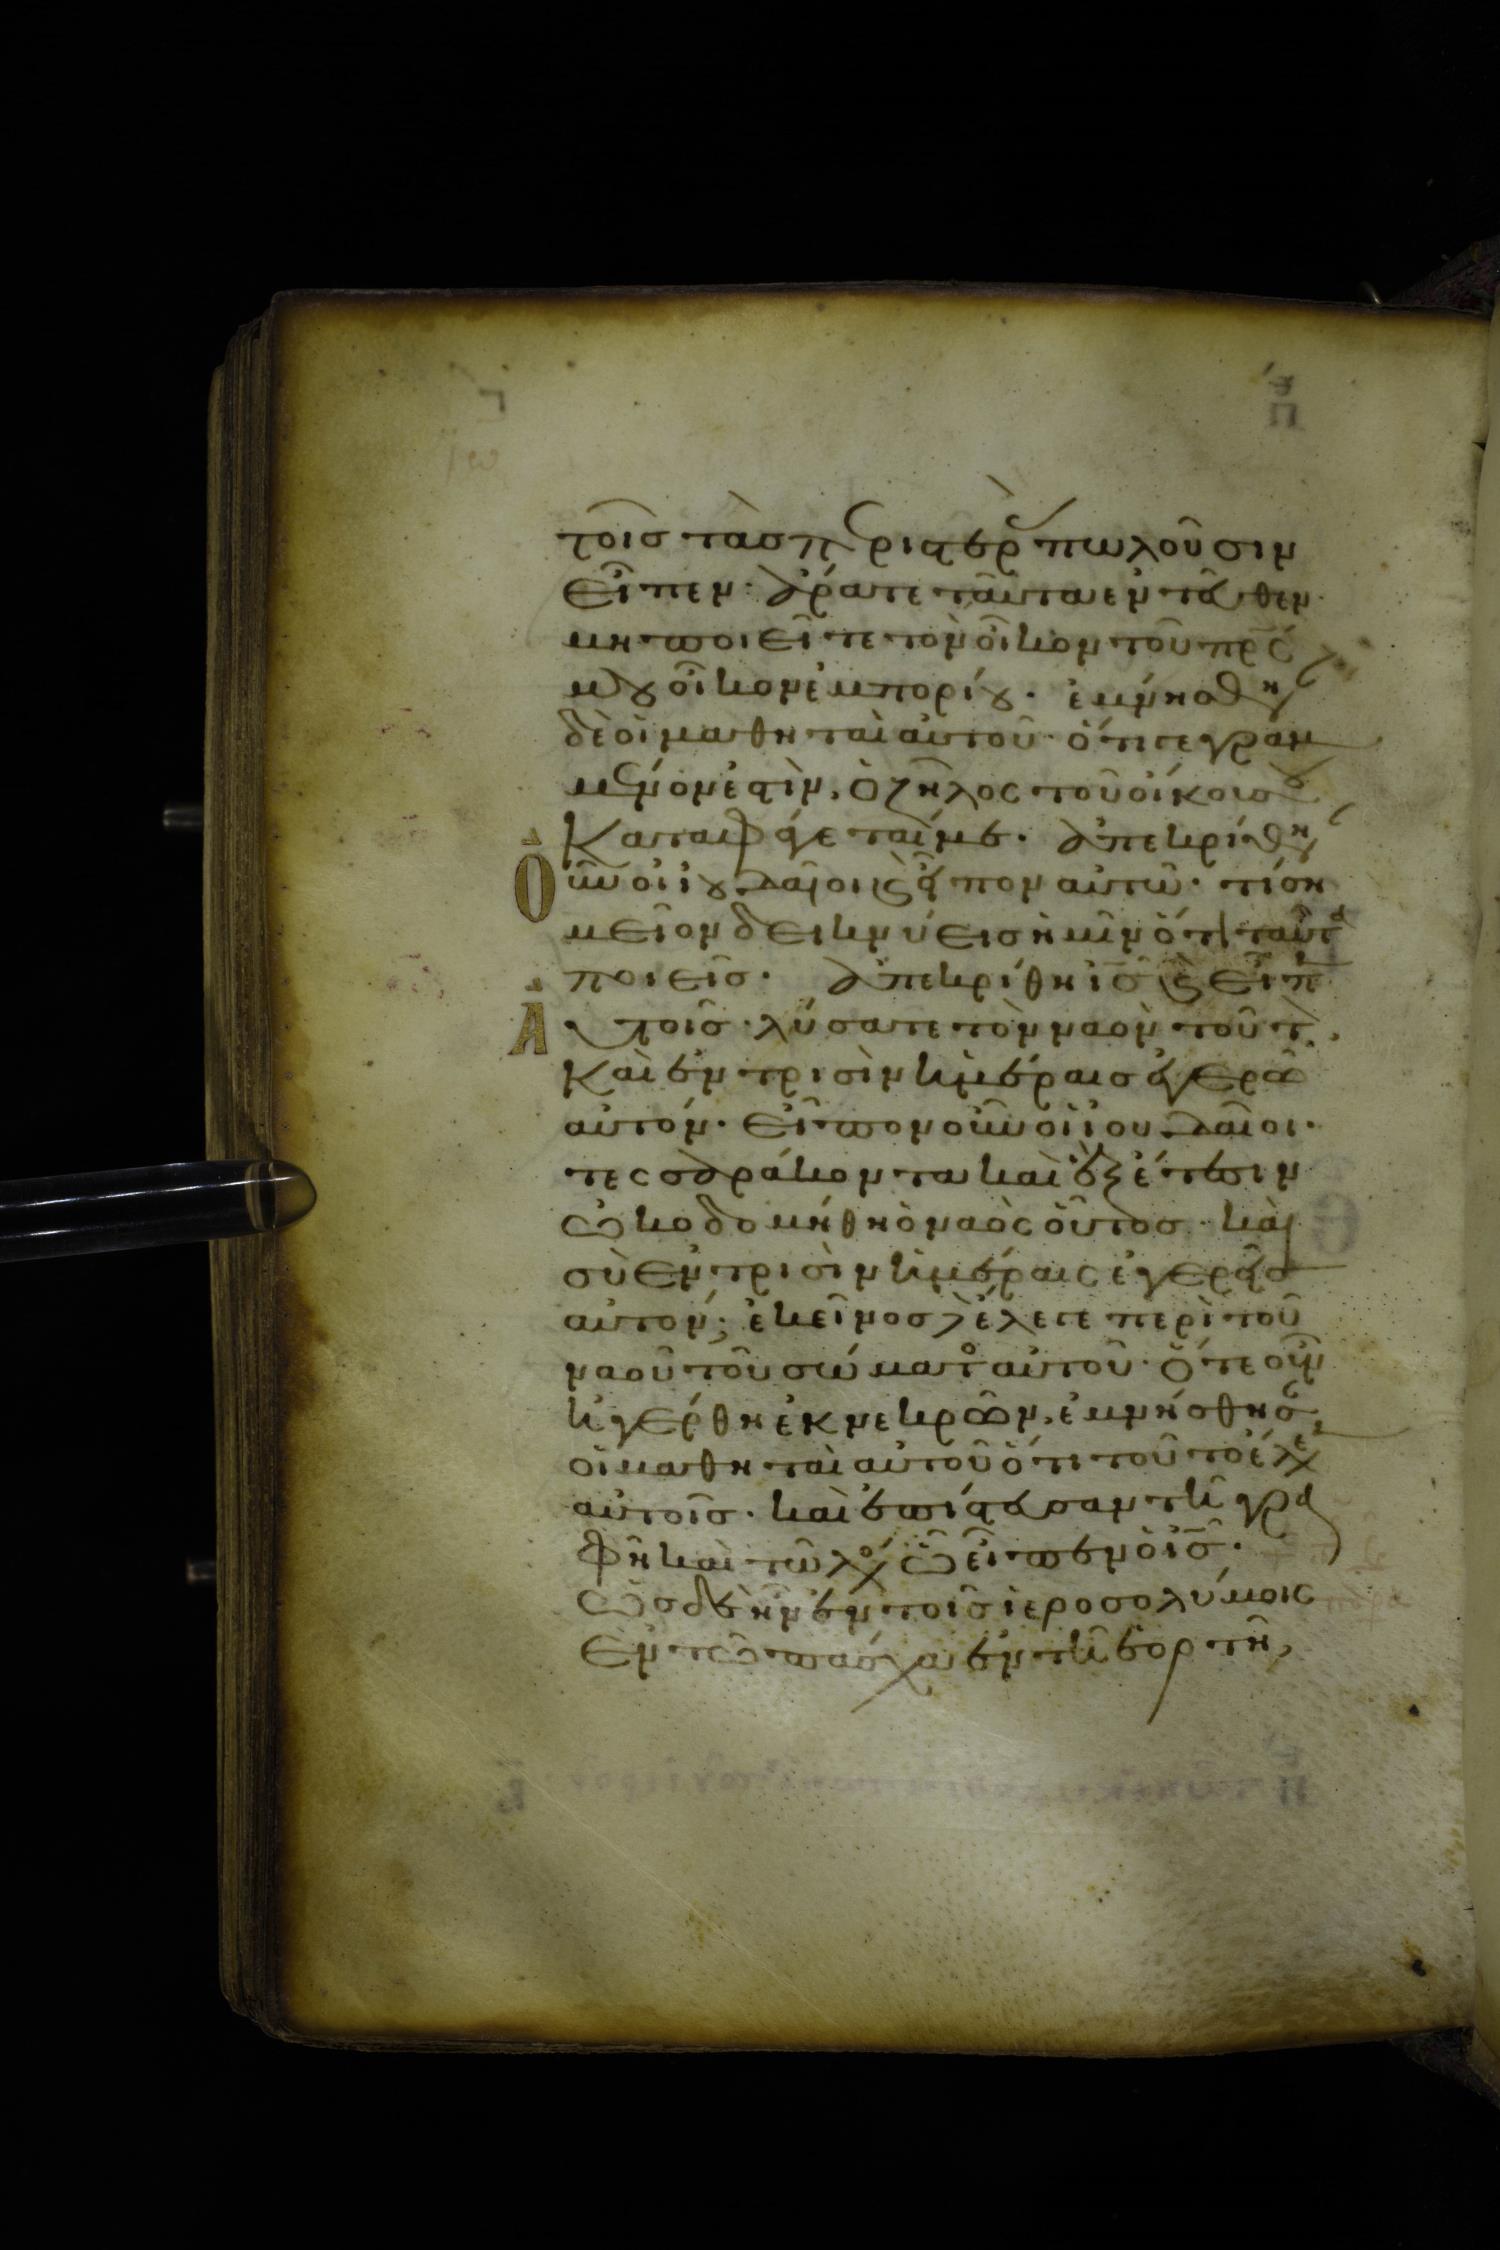 τοῖς τὰς περιστερὰς πωλοῦσιν
εἶπεν· ἄρατε ταῦτα ἐντεῦθεν·
μὴ ποιεῖτε τὸν οἶκον τοῦ πρς
μου οἶκον ἐμπορίου. ἐμνήσθη
δὲ οἱ μαθηταὶ αὐτοῦ· ὅτι γεγραμ
μένον ἐστὶν, ὁ ζῆλος τοῦ οἴκου σου
καταφάγεταί με. ἀπεκρίθη
Οὖν οἱ ἰουδαῖοι καὶ εἶπον αὐτῷ· τί ση
μεῖον δεικνύεις ἡμῖν ὅτι ταῦτα
ποιεῖς. ἀπεκρίθη ις καὶ εἶπε
Αὐτοῖς· λύσατε τὸν ναὸν τοῦτον,
καὶ ἐν τρισὶν ἡμέραις ἐγερῶ
αὐτόν. εἶπον οὖν οἱ ἰουδαῖοι.
τεσσαράκοντα καὶ ἓξ ἔτεσιν
ὠκοδομήθη ὁ ναὸς οὗτος· καὶ
σὺ ἐν τρισὶν ἡμέραις ἐγερεῖς
αὐτόν; ἐκεῖνος δὲ ἔλεγε περὶ τοῦ
ναοῦ τοῦ σώματος αὐτοῦ· ὅτε οὖν
ἠγέρθη ἐκ νεκρῶν, ἐμνήσθησαν
οἱ μαθηταὶ αὐτοῦ ὅτι τοῦτο ἔλεγεν
αὐτοῖς. καὶ ἐπίστευσαν τῇ γρα
φῇ καὶ τῷ λόγῳ ᾧ εἶπεν ὁ ις.
Ὡς δὲ ἦν ἐν τοῖς ἱεροσολύμοις
ἐν τῷ πάσχα ἐν τῇ ἑορτῇ,